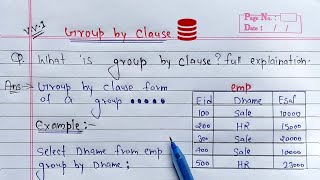 Group by Clause
Page No.:
Date: / /
V.V.I
Q. What is group by clause? full explaination.
Ans→ Group by clause form
of a group
Example:-
Select Dname from emp
group by Dname;
emp
Eid Dname Esal
100 Sale 10000
200 HR 15000
300 Sale 20000
400 Sale 10000
500 HR 23000